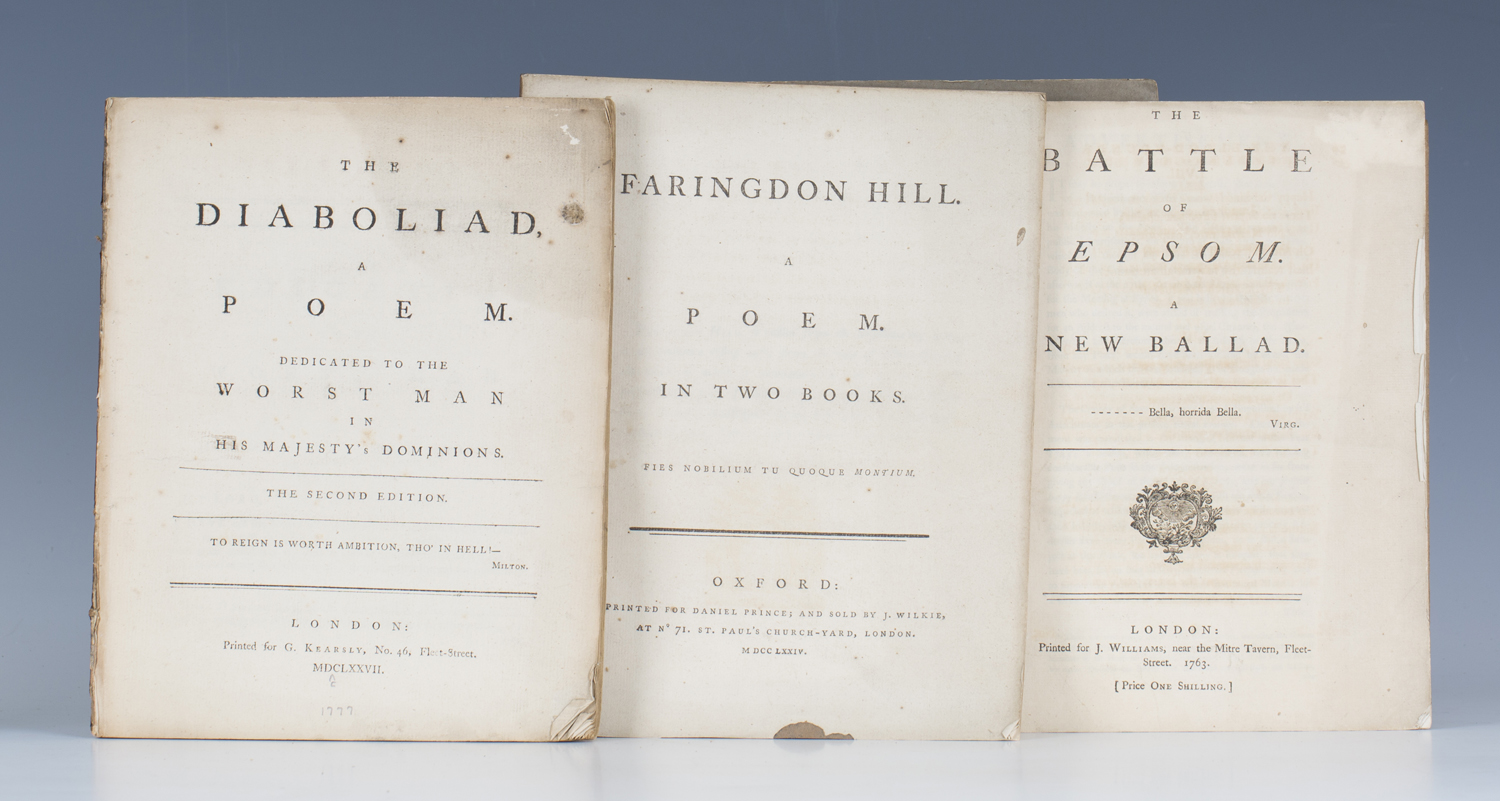 THE
DIABOLIAD,
A
POEM.
DEDICATED TO THE
WORST MAN
IN
HIS MAJESTY's DOMINIONS.
THE SECOND EDITION.
TO REIGN IS WORTH AMBITION, THO' IN HELL!—
MILTON.
LONDON:
Printed for G. KEARSLY, No. 46, Fleet-Street.
MDCLXXVII.
1777
FARINGDON HILL.
A
POEM.
IN TWO BOOKS.
FIES NOBILIUM TU QUOQUE MONTIUM.
OXFORD:
PRINTED FOR DANIEL PRINCE; AND SOLD BY J. WILKIE,
AT Nº 71. ST. PAUL'S CHURCH-YARD, LONDON.
M DCC LXXIV.
THE
BATTLE
OF
EPSOM.
A
NEW BALLAD.
------- Bella, horrida Bella.
VIRG.
LONDON:
Printed for J. WILLIAMS, near the Mitre Tavern, Fleet-
Street. 1763.
[Price ONE SHILLING.]